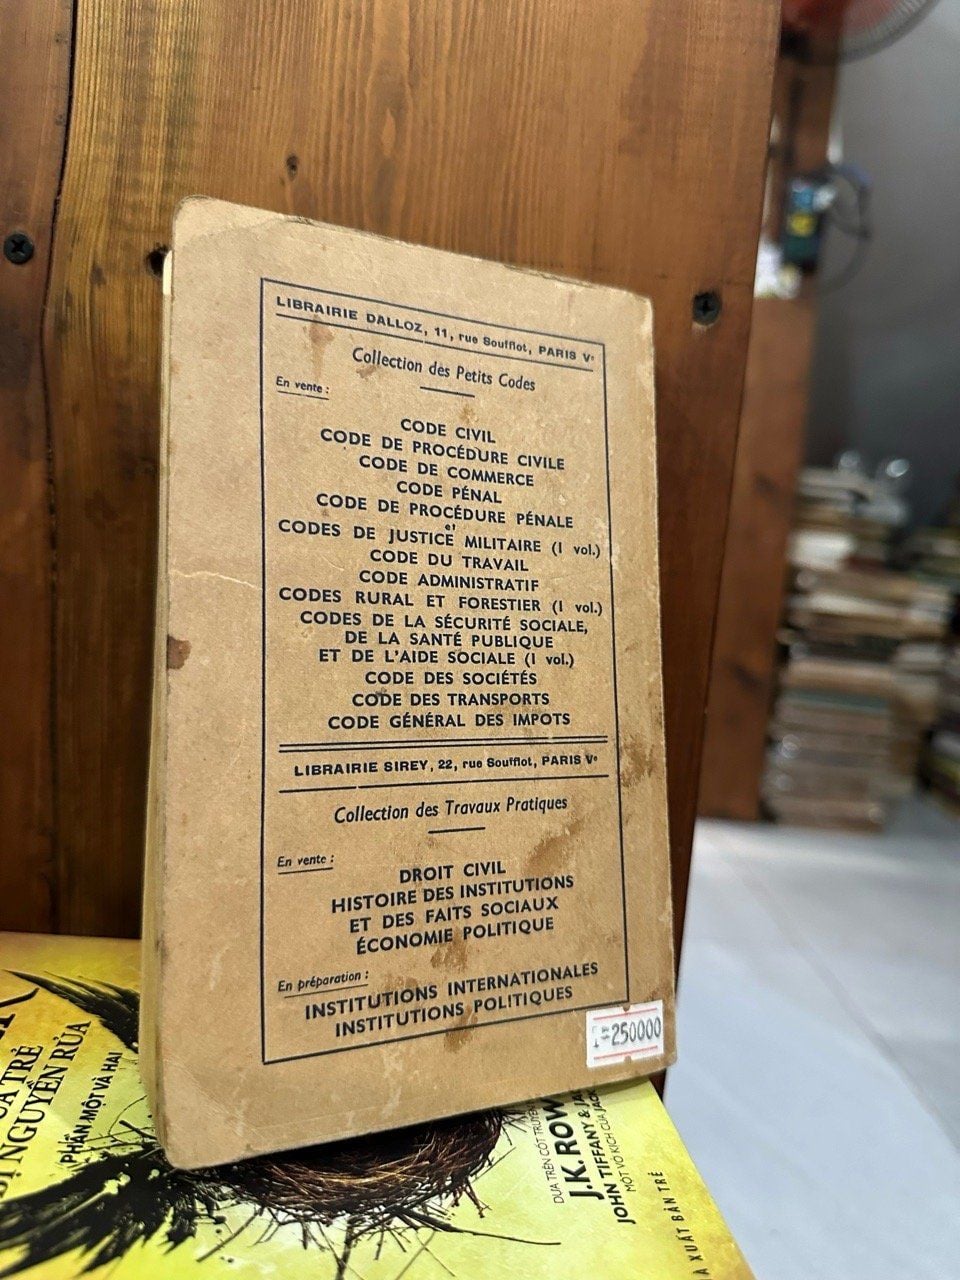 LIBRAIRIE DALLOZ, 11, rue Soufflot, PARIS Vᵉ
Collection des Petits Codes
En vente :
CODE CIVIL
CODE DE PROCÉDURE CIVILE
CODE DE COMMERCE
CODE PÉNAL
CODE DE PROCÉDURE PÉNALE
et
CODES DE JUSTICE MILITAIRE (I vol.)
CODE DU TRAVAIL
CODE ADMINISTRATIF
CODES RURAL ET FORESTIER (I vol.)
CODES DE LA SÉCURITÉ SOCIALE,
DE LA SANTÉ PUBLIQUE
ET DE L'AIDE SOCIALE (I vol.)
CODE DES SOCIÉTÉS
CODE DES TRANSPORTS
CODE GÉNÉRAL DES IMPOTS
LIBRAIRIE SIREY, 22, rue Soufflot, PARIS Vᵉ
Collection des Travaux Pratiques
En vente :
DROIT CIVIL
HISTOIRE DES INSTITUTIONS
ET DES FAITS SOCIAUX
ÉCONOMIE POLITIQUE
En préparation :
INSTITUTIONS INTERNATIONALES
INSTITUTIONS POLITIQUES
250000
TRẺ
NGUYỀN RỦA
PHẦN MỘT VÀ HAI
DỰA TRÊN CỐT TRUYỆN
J.K. ROW
JOHN TIFFANY & JA
MỘT VỞ KỊCH CỦA JACK
XUẤT BẢN TRẺ